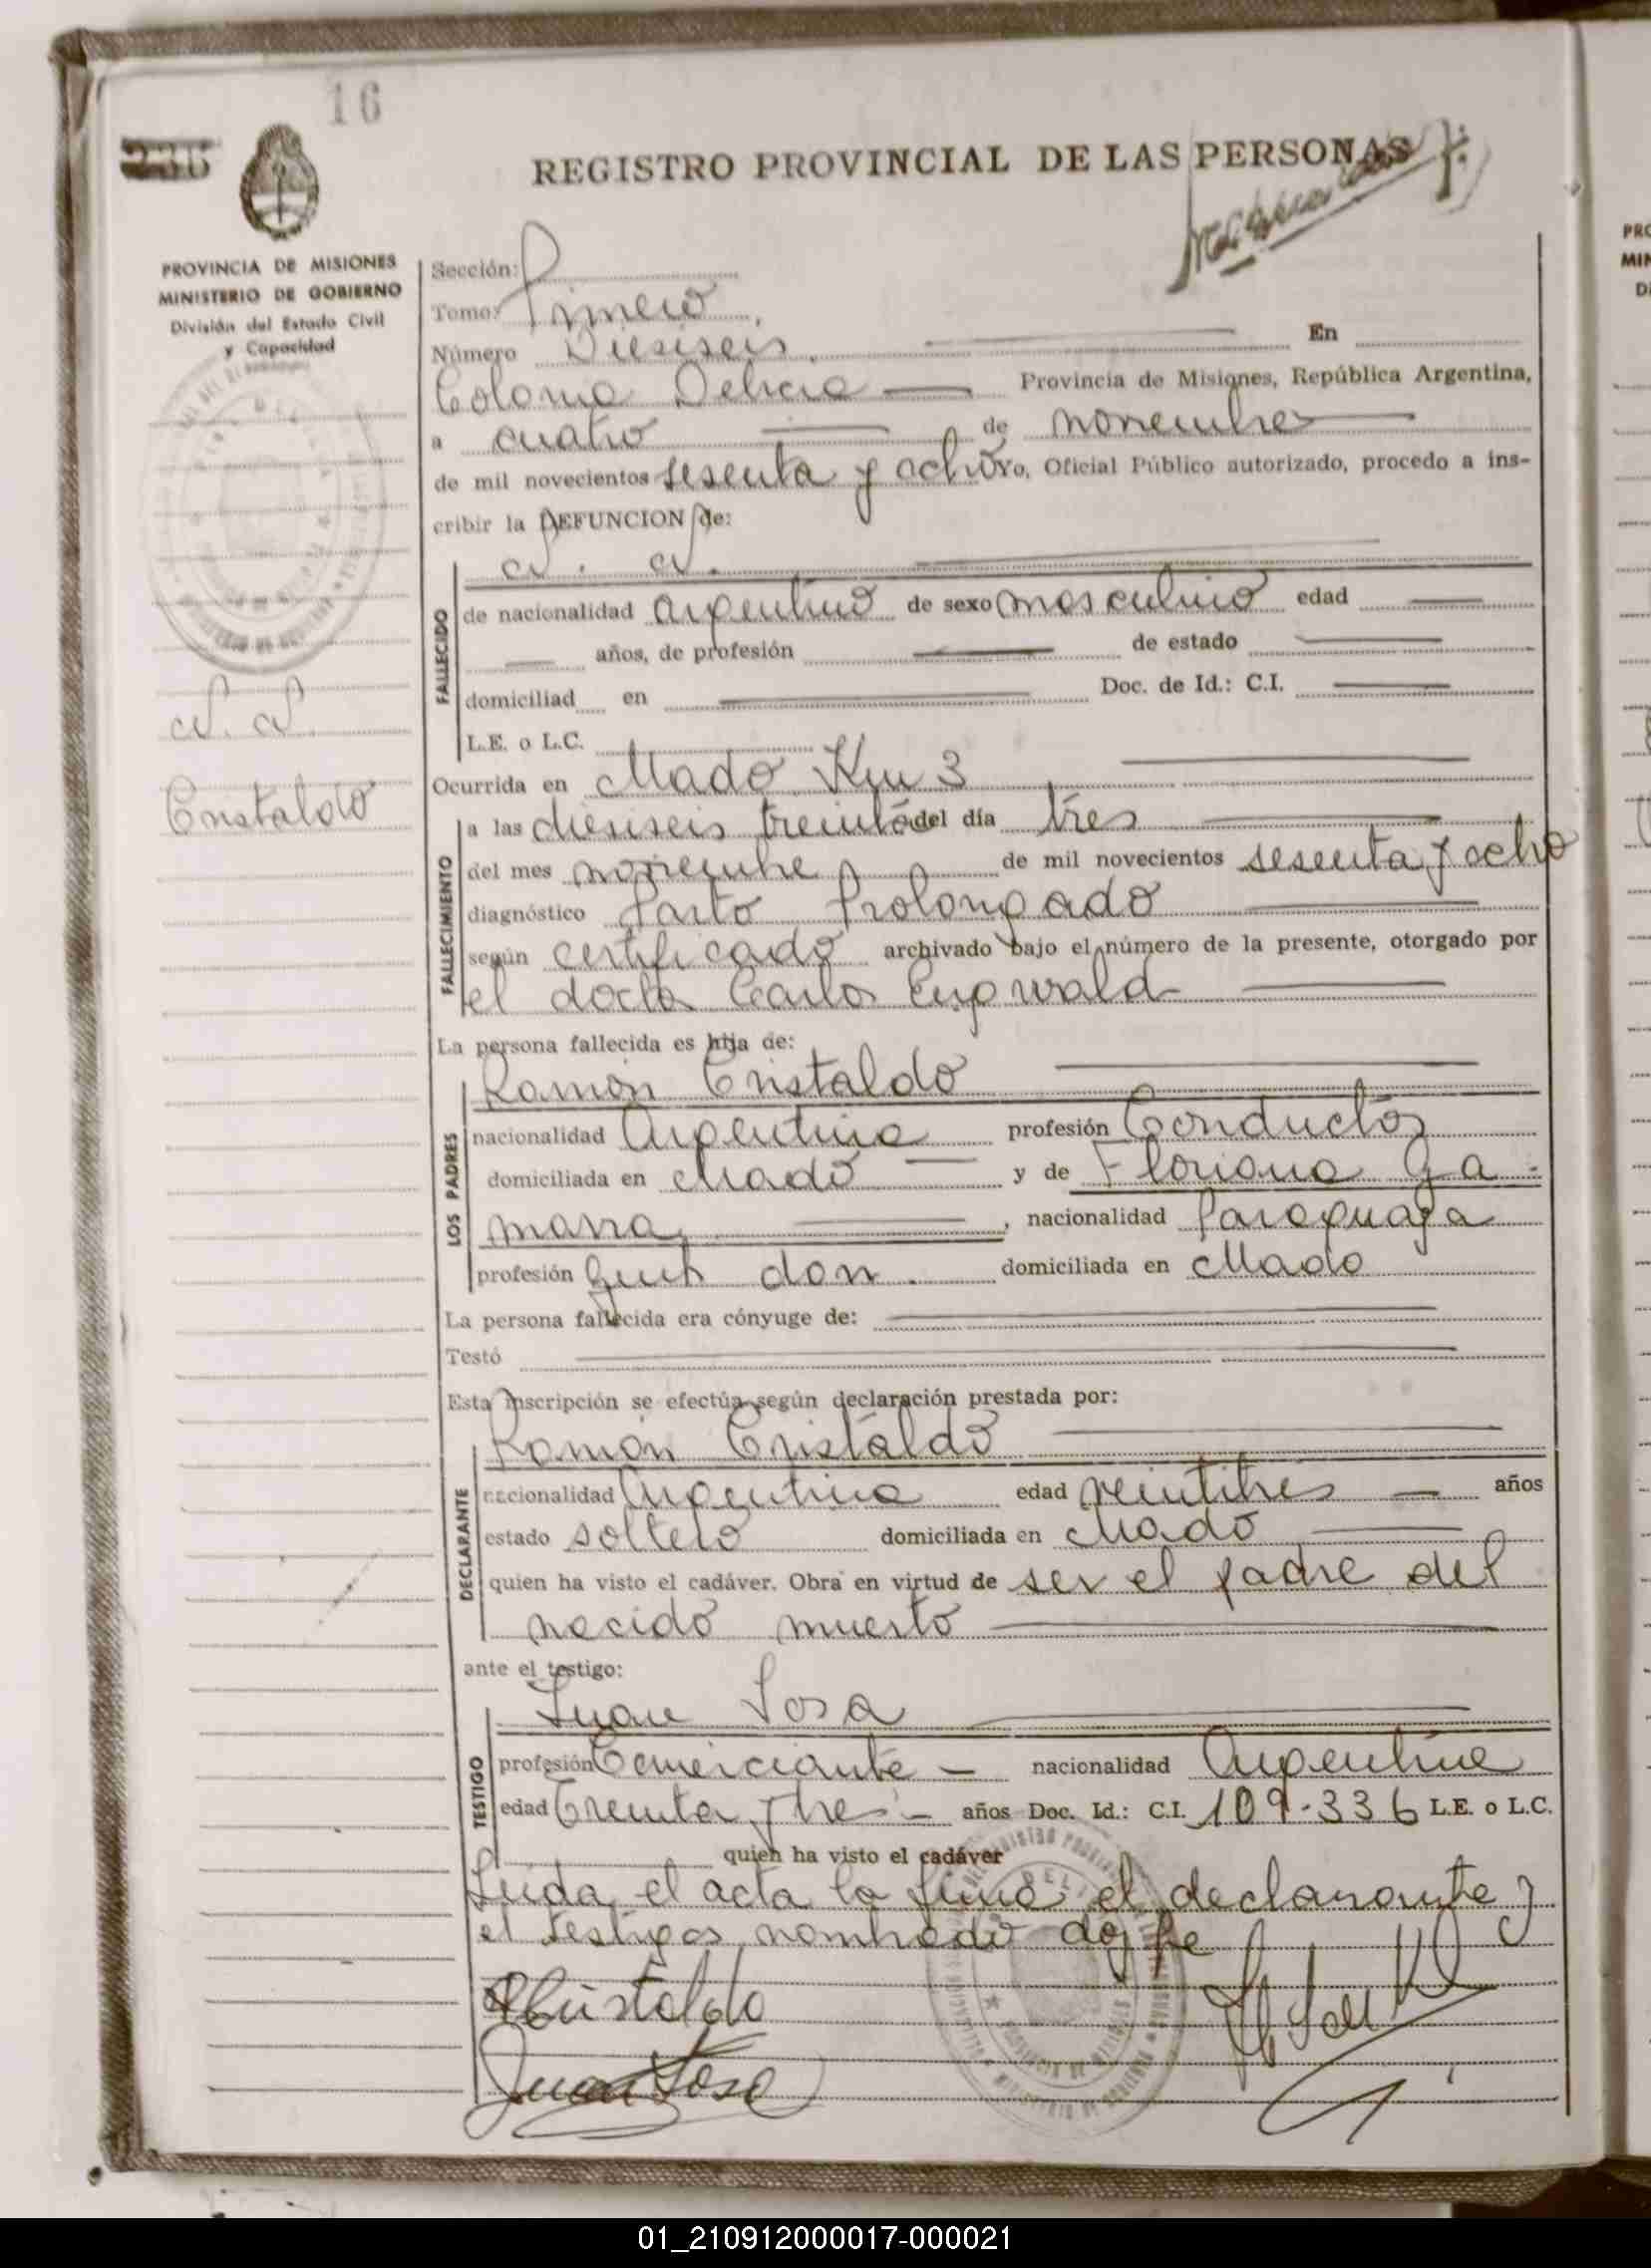 16
236
REGISTRO PROVINCIAL DE LAS PERSONAS
PROVINCIA DE MISIONES
MINISTERIO DE GOBIERNO
División del Estado Civil
y Capacidad
Sección:
Tomo: Primero,
Número Diesiseis. En
Colonia Delicia Provincia de Misiones, República Argentina,
a cuatro de noviembre
de mil novecientos sesenta y ocho Yo, Oficial Público autorizado, procedo a ins-
cribir la DEFUNCION de:
N. N.
FALLECIDO
de nacionalidad Argentino de sexo masculino edad
años, de profesión de estado
domiciliad en Doc. de Id.: C.I.
L.E. o L.C.
N. N.
Cristaldo
Ocurrida en Mado Km 3
FALLECIMIENTO
a las diesiseis treinta del día tres
del mes noviembre de mil novecientos sesenta y ocho
diagnóstico Parto Prolongado
según certificado archivado bajo el número de la presente, otorgado por
el doctor Carlos
La persona fallecida es hija de:
Ramón Cristaldo
LOS PADRES
nacionalidad Argentina profesión Conductor
domiciliada en Mado y de Floriana Ga
marra, , nacionalidad Paraguaya
profesión Queh dom. domiciliada en Mado
La persona fallecida era cónyuge de:
Testó
Esta inscripción se efectúa según declaración prestada por:
Ramón Cristaldo
DECLARANTE
nacionalidad Argentina edad veintitres años
estado soltero domiciliada en Mado
quien ha visto el cadáver. Obra en virtud de ser el padre del
nacido muerto
ante el testigo:
Juan Sosa
TESTIGO
profesión Comerciante nacionalidad Argentina
edad Treinta y tres años Doc. Id.: C.I. 109-336 L.E. o L.C.
quien ha visto el cadáver
Leida el acta la firma el declarante y
el testigos nombrado doy fe
RCristaldo
Juan Sosa
01_210912000017-000021